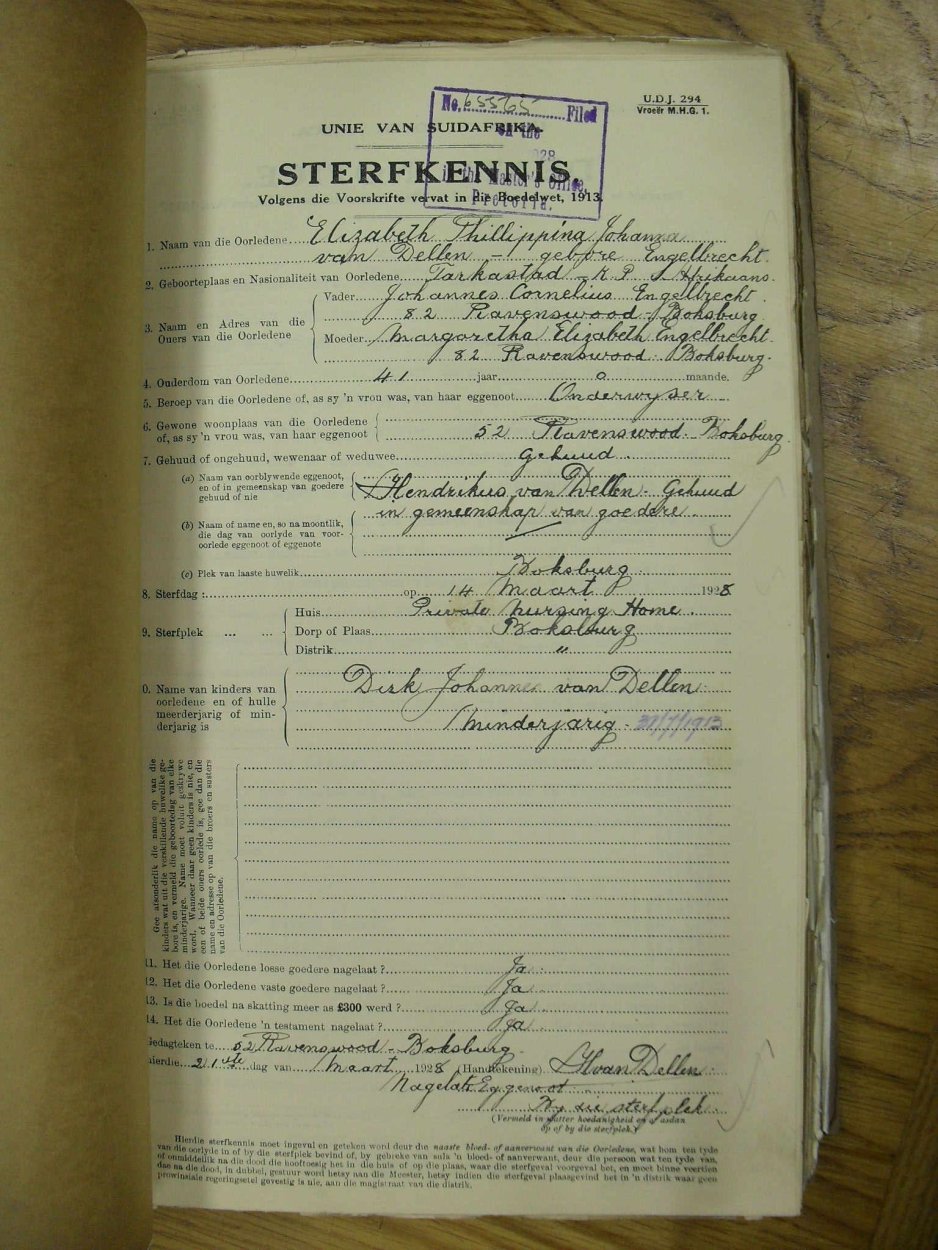 U.D.J. 294
Vroeër M.H.G. 1.
No. 65565 Filed
on the
in the Master's Office,
Pretoria.
UNIE VAN SUIDAFRIKA.
STERFKENNIS,
Volgens die Voorskrifte vervat in die Boedelwet, 1913.
1. Naam van die Oorledene Elizabeth Phillippina Johanna
van Dellen - gebore Engelbrecht
2. Geboorteplaas en Nasionaliteit van Oorledene Tarkastad - K.P. Afrikaans.
3. Naam en Adres van die Ouers van die Oorledene
Vader Johannes Cornelius Engelbrecht
82 Ravenswood - Boksburg
Moeder Margaretha Elizabeth Engelbrecht
82 Ravenswood Boksburg.
4. Ouderdom van Oorledene 41 jaar 0 maande.
5. Beroep van die Oorledene of, as sy 'n vrou was, van haar eggenoot Onderwyser
6. Gewone woonplaas van die Oorledene
of, as sy 'n vrou was, van haar eggenoot 52 Ravenswood - Boksburg
7. Gehuud of ongehuud, wewenaar of weduwee Gehuud
(a) Naam van oorblywende eggenoot,
en of in gemeenskap van goedere
gehuud of nie
Hendrikus van Dellen. Gehuud
in gemeenskap van goedere
(b) Naam of name en, so na moontlik,
die dag van oorlyde van voor-
oorlede eggenoot of eggenote
(c) Plek van laaste huwelik Boksburg
8. Sterfdag: op 14 Maart 1928
9. Sterfplek
Huis Private Nursing Home
Dorp of Plaas Boksburg
Distrik "
0. Name van kinders van
oorledene en of hulle
meerderjarig of min-
derjarig is
Dirk Johannes van Dellen
Minderjarig - /7/1913
Gee afsonderlik die name op van die
kinders wat uit die verskillende huwelike ge-
bore is, en vermeld die geboortedag van elke
minderjarige. Name moet voluit geskrywe
word. Wanneer daar geen kinders is nie, en
een of beide ouers oorlede is, gee dan die
name en adresse op van die broers en susters
van die Oorledene.
11. Het die Oorledene losse goedere nagelaat? Ja
12. Het die Oorledene vaste goedere nagelaat? Ja
13. Is die boedel na skatting meer as £300 werd? Ja
14. Het die Oorledene 'n testament nagelaat? Ja
Gedagteken te 52 Ravenswood - Boksburg
hierdie 21ste dag van Maart 1928 (Handtekening) H van Dellen
Nagelate Eggenoot
By die sterfplek
(Vermeld in watter hoedanigheid en of asdan
op of by die sterfplek.)
Hierdie sterfkennis moet ingeval en geteken word deur die naaste bloed- of aanverwant van die Oorledene, wat hom ten tyde
van die oorlyde in of by die sterfplek bevind of, by gebreke van sula 'n bloed- of aanverwant, deur die persoon wat ten tyde van,
of onmiddellik na die dood die hooftoesig het in die huis of op die plaas, waar die sterfgeval voorgeval het, en moet binne veertien
dae na die dood, in dubbel, gestuur word hetsy aan die Meester, hetsy indien die sterfgeval plaasgevind het in 'n distrik waar geen
provinsiale regeringsetel gevestig is nie, aan die magistraat van die distrik.